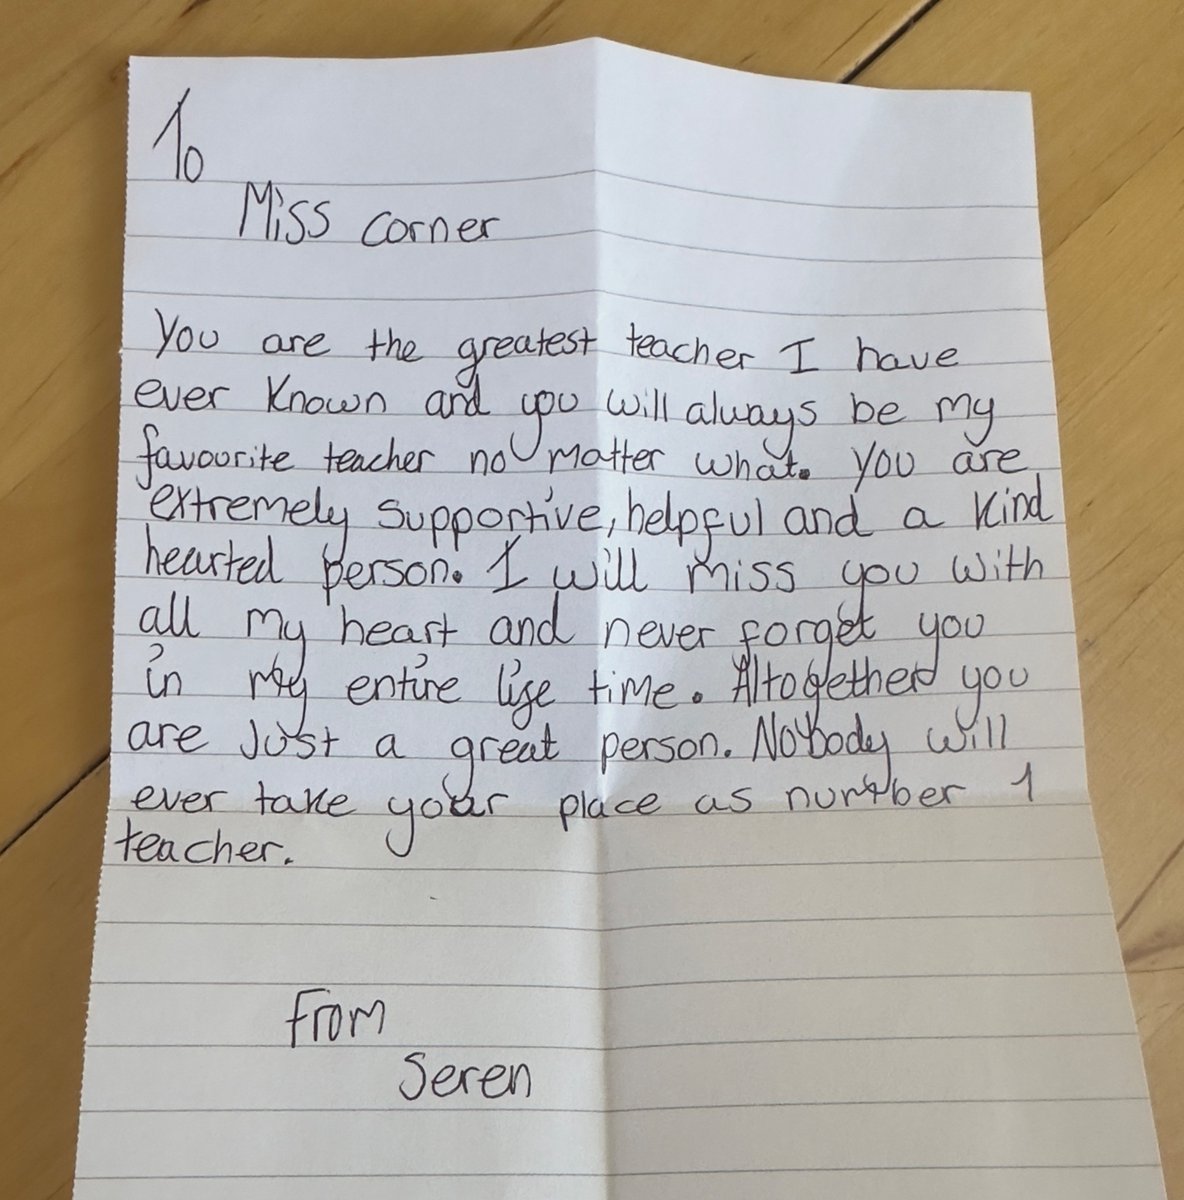 To
Miss corner
You are the greatest teacher I have
ever known and you will always be my
favourite teacher no matter what. You are
extremely supportive, helpful and a kind
hearted person. I will miss you with
all my heart and never forget you
in my entire life time. Altogether you
are just a great person. Nobody will
ever take your place as number 1
teacher.
From
Seren